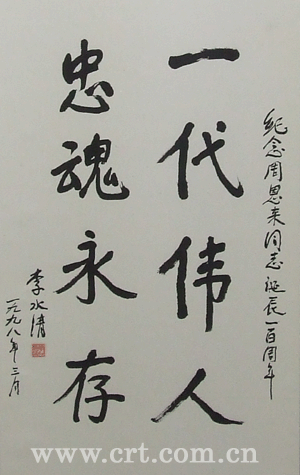 纪念周恩来同志诞辰一百周年
一代伟人
忠魂永存
李水清
一九九八年三月
www.crt.com.cn